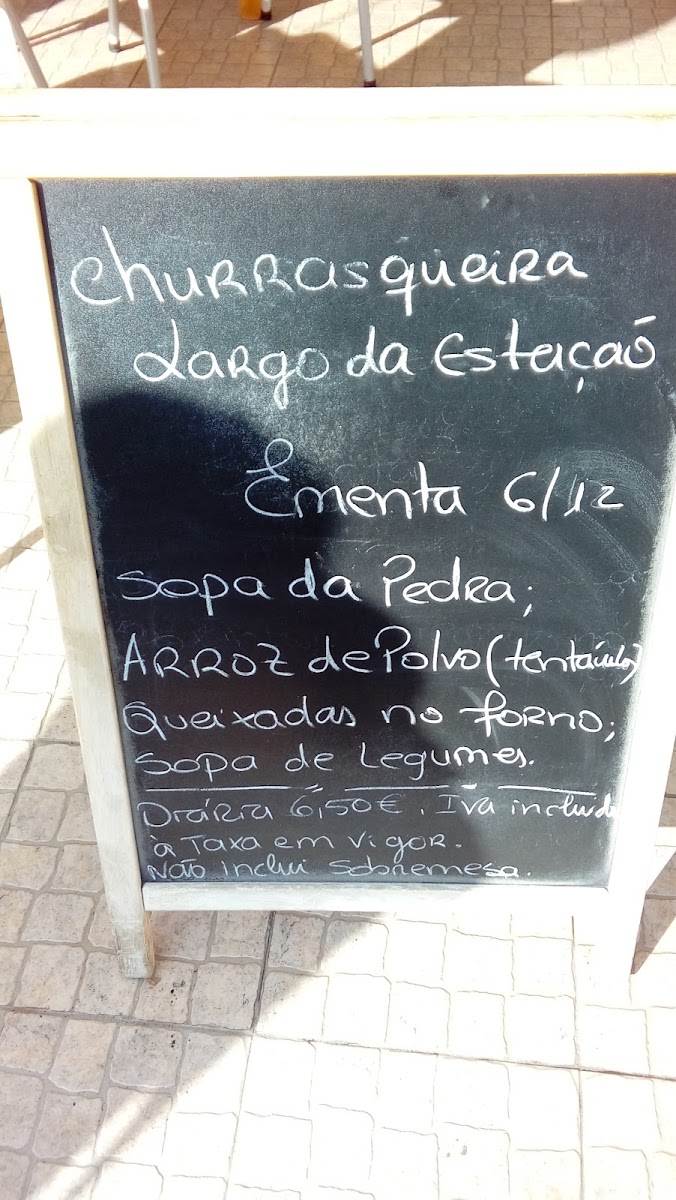 Churrasqueira
Largo da Estação
Ementa 6/12
Sopa da Pedra;
Arroz de Polvo (tentáculos)
Queixadas no forno;
Sopa de Legumes.
Diária 6,50€. Iva incluido
à Taxa em vigor.
Não inclui sobremesa.